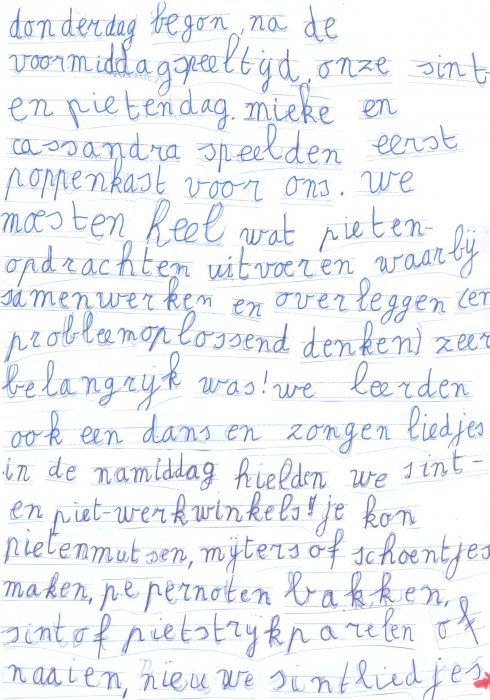 donderdag begon, na de
voormiddagspeeltijd, onze sint-
en pietendag. mieke en
cassandra speelden eerst
poppenkast voor ons. we
moesten heel wat pieten-
opdrachten uitvoeren waarbij
samenwerken en overleggen (en
probleemoplossend denken) zeer
belangrijk was! we leerden
ook een dans en zongen liedjes
in de namiddag hielden we sint-
en piet-werkwinkels! je kon
pietenmutsen, mijters of schoentjes
maken, pepernoten bakken,
sint of pietstrijkparelen of
naaien, nieuwe sintliedjes